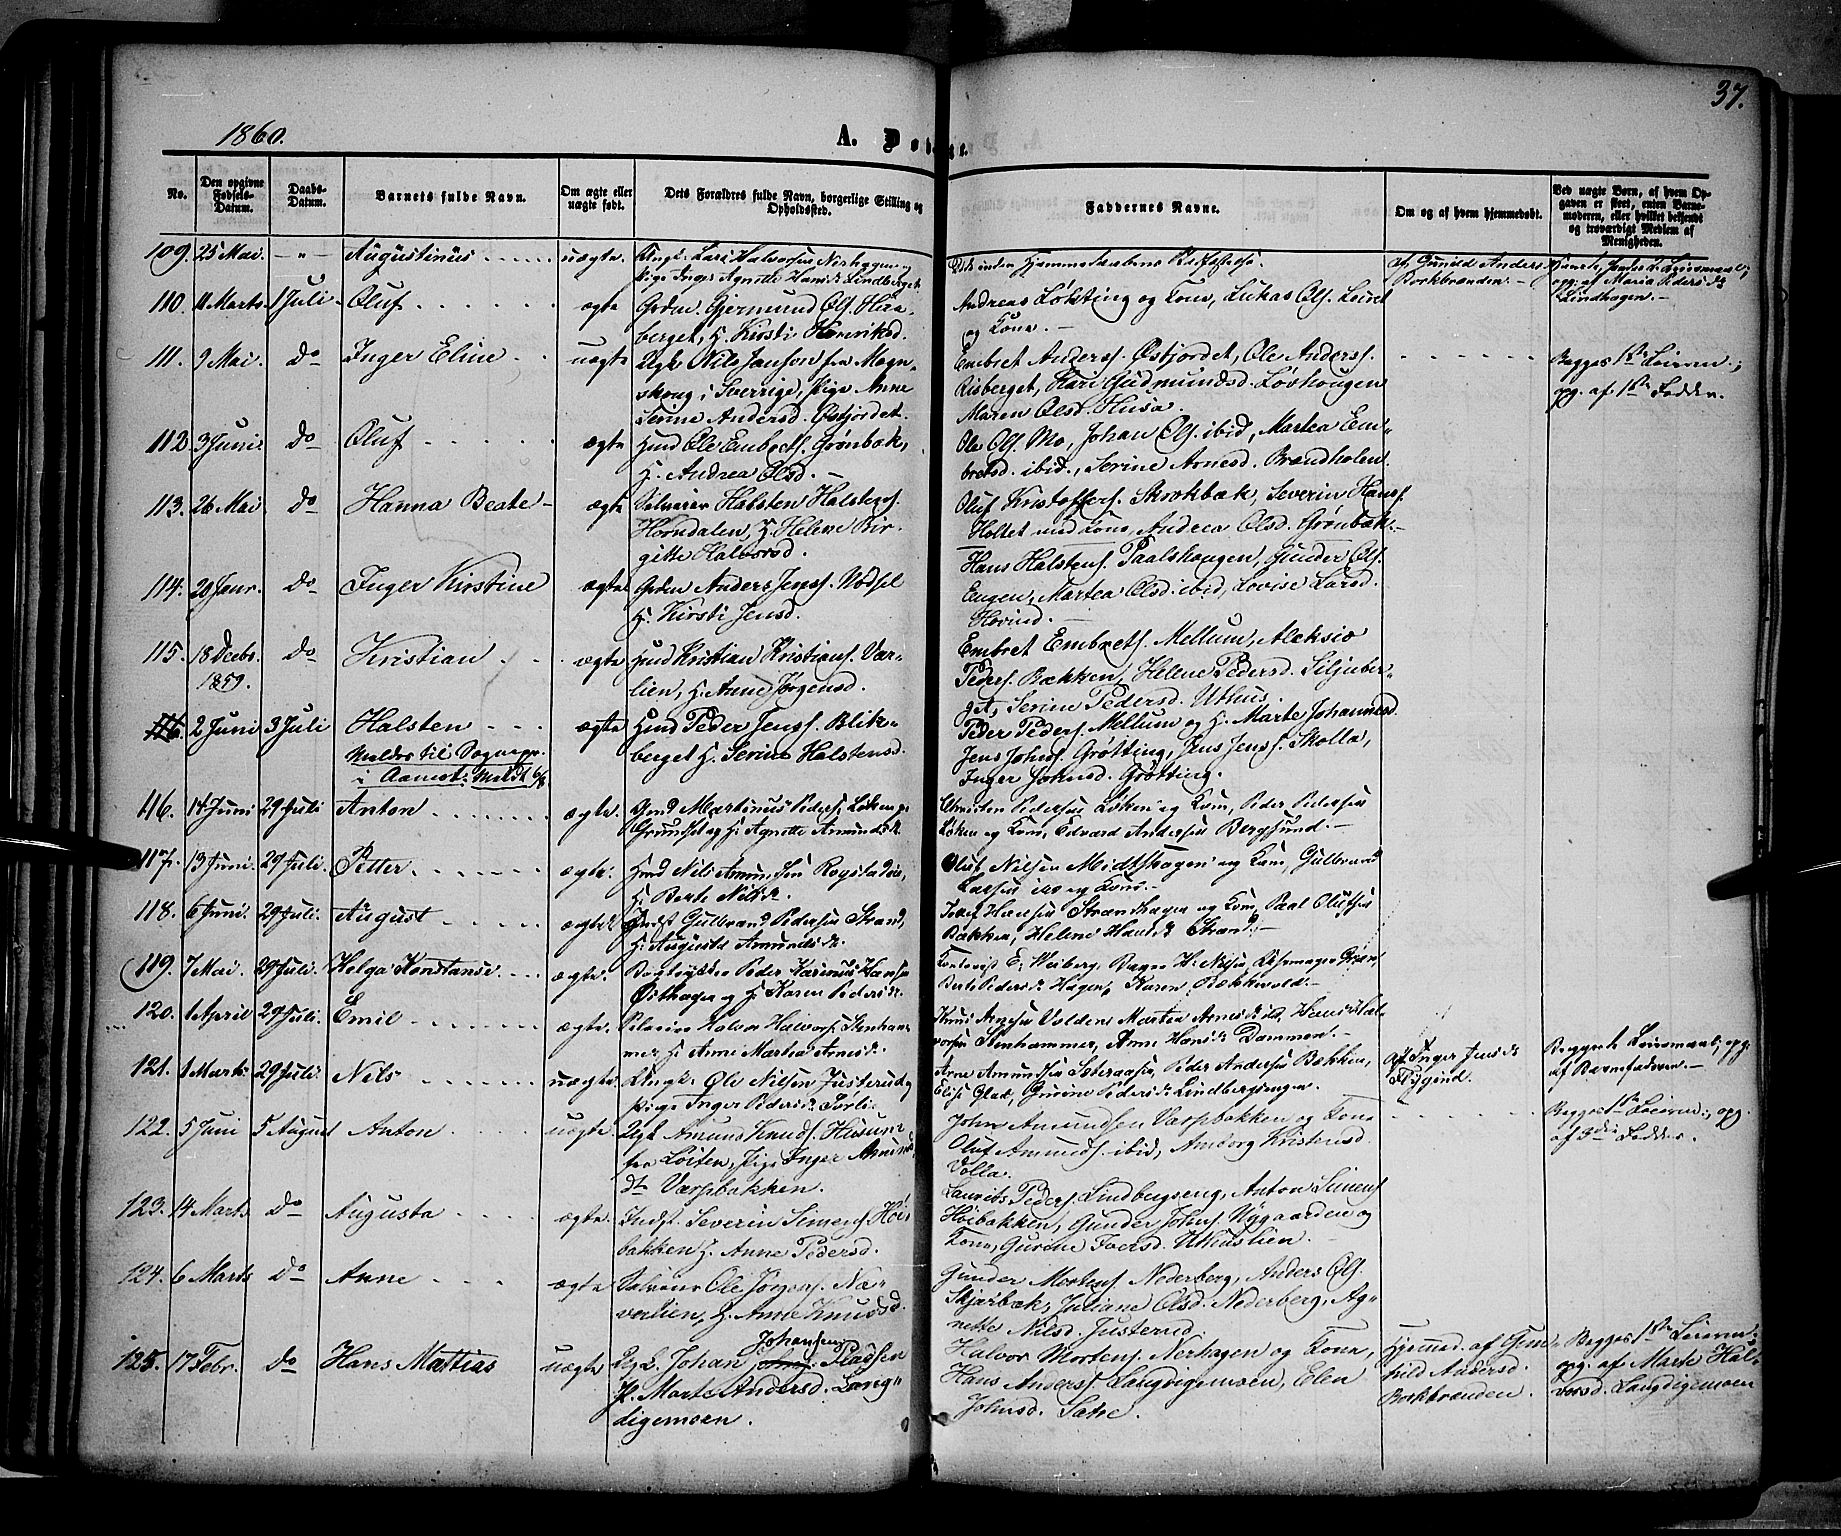 37.
1860.
A. Døbte.
No.
Den opgivne Fødsels-Datum.
Daabs-Datum.
Barnets fulde Navn.
Om ægte eller uægte født.
Dets Forældres fulde Navn, borgerlige Stilling og Opholdssted.
Faddernes Navne.
Om og af hvem hjemmedøbt.
Ved uægte Børn, af hvem Opgaven er skeet, enten Barnemoderen, eller hvilket bekjendt og troværdigt Medlem af Menigheden.
109. 25 Mai. -"- Augustinus uægte. Ungk. Lars Halvorsen
Pige Inger Agnethe Hansd.
af Gunild Anders
Borkbrænden.
opg. af Maria Pedersd.
Lindhagen.
110. 11 Marts 1 Juli Oluf ægte Grdm. Gjermund Ols. Haa-
berget, H. Kirsti Henriksd.
Andreas Løkting og Kone, Lukas Ols. Leiret
og Kone.
111. 9 Mai. do Inger Eline uægte Ugk Nils Janson fra Magn-
skoug i Sverrige, Pige Anne
Serine Andersd. Østfjordet.
Embret Anderss. Østjordet, Ole Anderss.
Risberget, Kari Gudmundsd. Løvhougen
Maren Olsd. Husa.
Begges 1ste Leierm.;
opg. af 1ste Fadder.
112 3 Juni. do Oluf ægte Hmd Ole Embrets. Grønbæk,
H. Andrea Olsd.
Ole Ols. Mo, Johan Ols. ibid, Martea Em-
bretsd. ibid., Serine Arnesd. Brændholen.
113. 26 Mai do Hanna Beate ægte Selveier Halsten Halstens.
Horndalen, H. Helene Bir-
gitte Halvorsd.
Oluf Kristoffers. Skrækbæk, Severin Hans.
Holtet med Kone, Andrea Olsd. Grønbæk.
114. 20 Janr. do Inger Kirstine ægte Grdm Anders Jens. Vødsel
H. Kirsti Jensd.
Hans Halstens. Paalshaugen, Gunder Ols.
Engen, Martea Olsd. ibid, Lovise Larsd.
Hovind.
115. 18 Decbr. do Kristian ægte Hmd Kristian Kristians. Vær-
1859.
lien, H. Anne Jørgensd.
Embret Embrets. Mellum, Aleksie
Peders. Bækken, Helene Pedersd. Siljuber-
get, Serine Pedersd. Uthus.
116. 2 Juni 3 Juli Halsten ægte Hmd Peder Jens. Blik-
berget H. Serine Halstensd.
Meldes til Sognepr.
i Aamot. Meldt 6/8
Peder Peders. Mellum og H. Marte Johannesd.
Jens Johns. Grøtting, Jens Jens. Skolla,
Inger Johnsd. Grøtting.
116. 14 Juni 29 Juli Anton ægte. Hmd Martinus Peders. Løken pr
Grundset og H. Agnethe Amundsd.
Christen Pedersen Løken og Kone, Peder Pedersen
Løken og Kone, Edvard Andersen Bergsund.
117. 13 Juni. 29 Juli. Petter ægte. Hmd Nils Amundsen Rogstadeie,
H. Berte Nilsd.
Oluf Nilsen Midtskogen og Kone, Gulbrand
Larsen og Kone.
118. 6 Juni. 29 Juli. August ægte. Indst Gulbrand Pedersen Strand,
H. Augusta Amundsd.
Hansen Strandhagen og Kone, Paal Olufsen
Bækken, Helene Hansd. Strand.
119. 7 Mai. 29 Juli. Helga Konstanse ægte. Peder Karinius Hansen
Østhagen og H. Karen Pedersd.
E. Weiberg, H. Nilsen,
Berte Pedersd. Hagen, Karen Bækkevold.
120. 1 April 29 Juli. Emil ægte. Halvor Halvors. Stenham-
mer, H. Anne Martea Arnesd.
Knud Arnesen Volden, Martea Arnesd. ibid, Hans Hal-
vorsen Stenhammer, Anne Hansd. Dammen.
121. 1 Marts 29 Juli. Nils uægte Ungk. Ole Nilsen Justerud,
Pige Inger Pedersd. Sørlie
Arne Amundsen Sæteraasen, Peder Andersen Bækken,
Elise Glad, Gurine Pedersd. Lindbergsengen.
af Inger Jensd.
Flygind.
Begges 1ste Leiermaal; opg.
af Barnefaderen.
122. 5 Juni 5 August Anton uægte. Ugk Amund Knuds. Husum
fra Løiten, Pige Inger Amunds
dtr Værpbakken.
John Amundsen Værpbakken og Kone
Oluf Amunds. ibid, Amborg Kristensd.
Volla.
Begges 1ste Leierm.; opg.
af 3die Fadder.
123. 14 Marts do Augusta ægte. Indst. Severin Simens. Høi-
bakken H. Anne Pedersd.
Laurits Peders. Lindbergseng, Anton Simens.
Høibakken, Gunder Johns. Nygaarden og
Kone, Gurine Iversd. Uthuslien.
124. 6 Marts do Anne ægte Selveier Ole Jørgens. Næ-
verlien, H. Anne Knudsd.
Gunder Mortens. Nederberg, Anders Ols.
Skjærbæk, Juliane Olsd. Nederberg, Ag-
nette Nilsd. Justerud.
125. 17 Febr. do Hans Mattias uægte Ugk. Johan Johansen Pladsen
P. Marte Andersd. Lang-
digemoen.
Halvor Mortens. Nerhagen og Kone,
Hans Anders. Langdigemoen, Elen
Johnsd. Sætre.
Hjemmd. af Gun-
hild Andersd.
Borkbrænden.
Begges 1ste Leierm.
opg. af Marte Hal-
vorsd. Langdigemoen